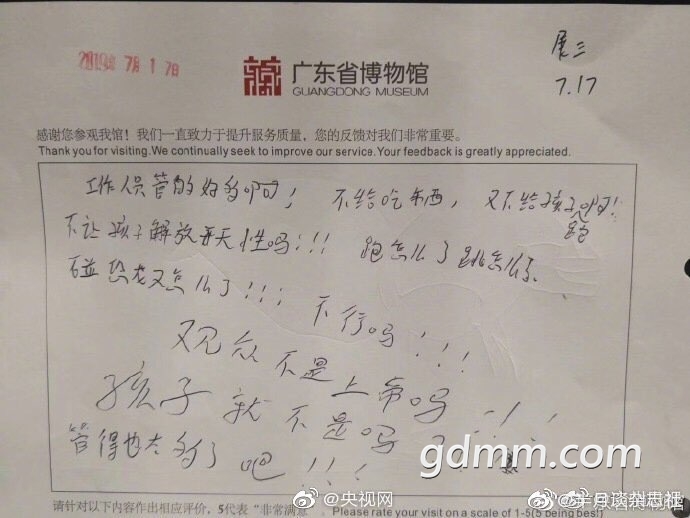 2019年 7月 17日
展三
7.17
广东省博物馆
GUANGDONG MUSEUM
感谢您参观我馆！我们一直致力于提升服务质量，您的反馈对我们非常重要。
Thank you for visiting.We continually seek to improve our service.Your feedback is greatly appreciated.
工作人员管的好多啊！ 不给吃东西，又不给孩子跑啊！
不让孩子解放天性吗！！！ 跑怎么了跳怎么了
碰恐龙又怎么了！！！ 不行吗！！！
观众不是上帝吗
孩子就不是吗？！！！
管得也太多了吧！！！
gdmm.com
请针对以下内容作出相应评价，5代表“非常满意
Please rate your visit on a scale of 1-5(5 being best)
@央视网